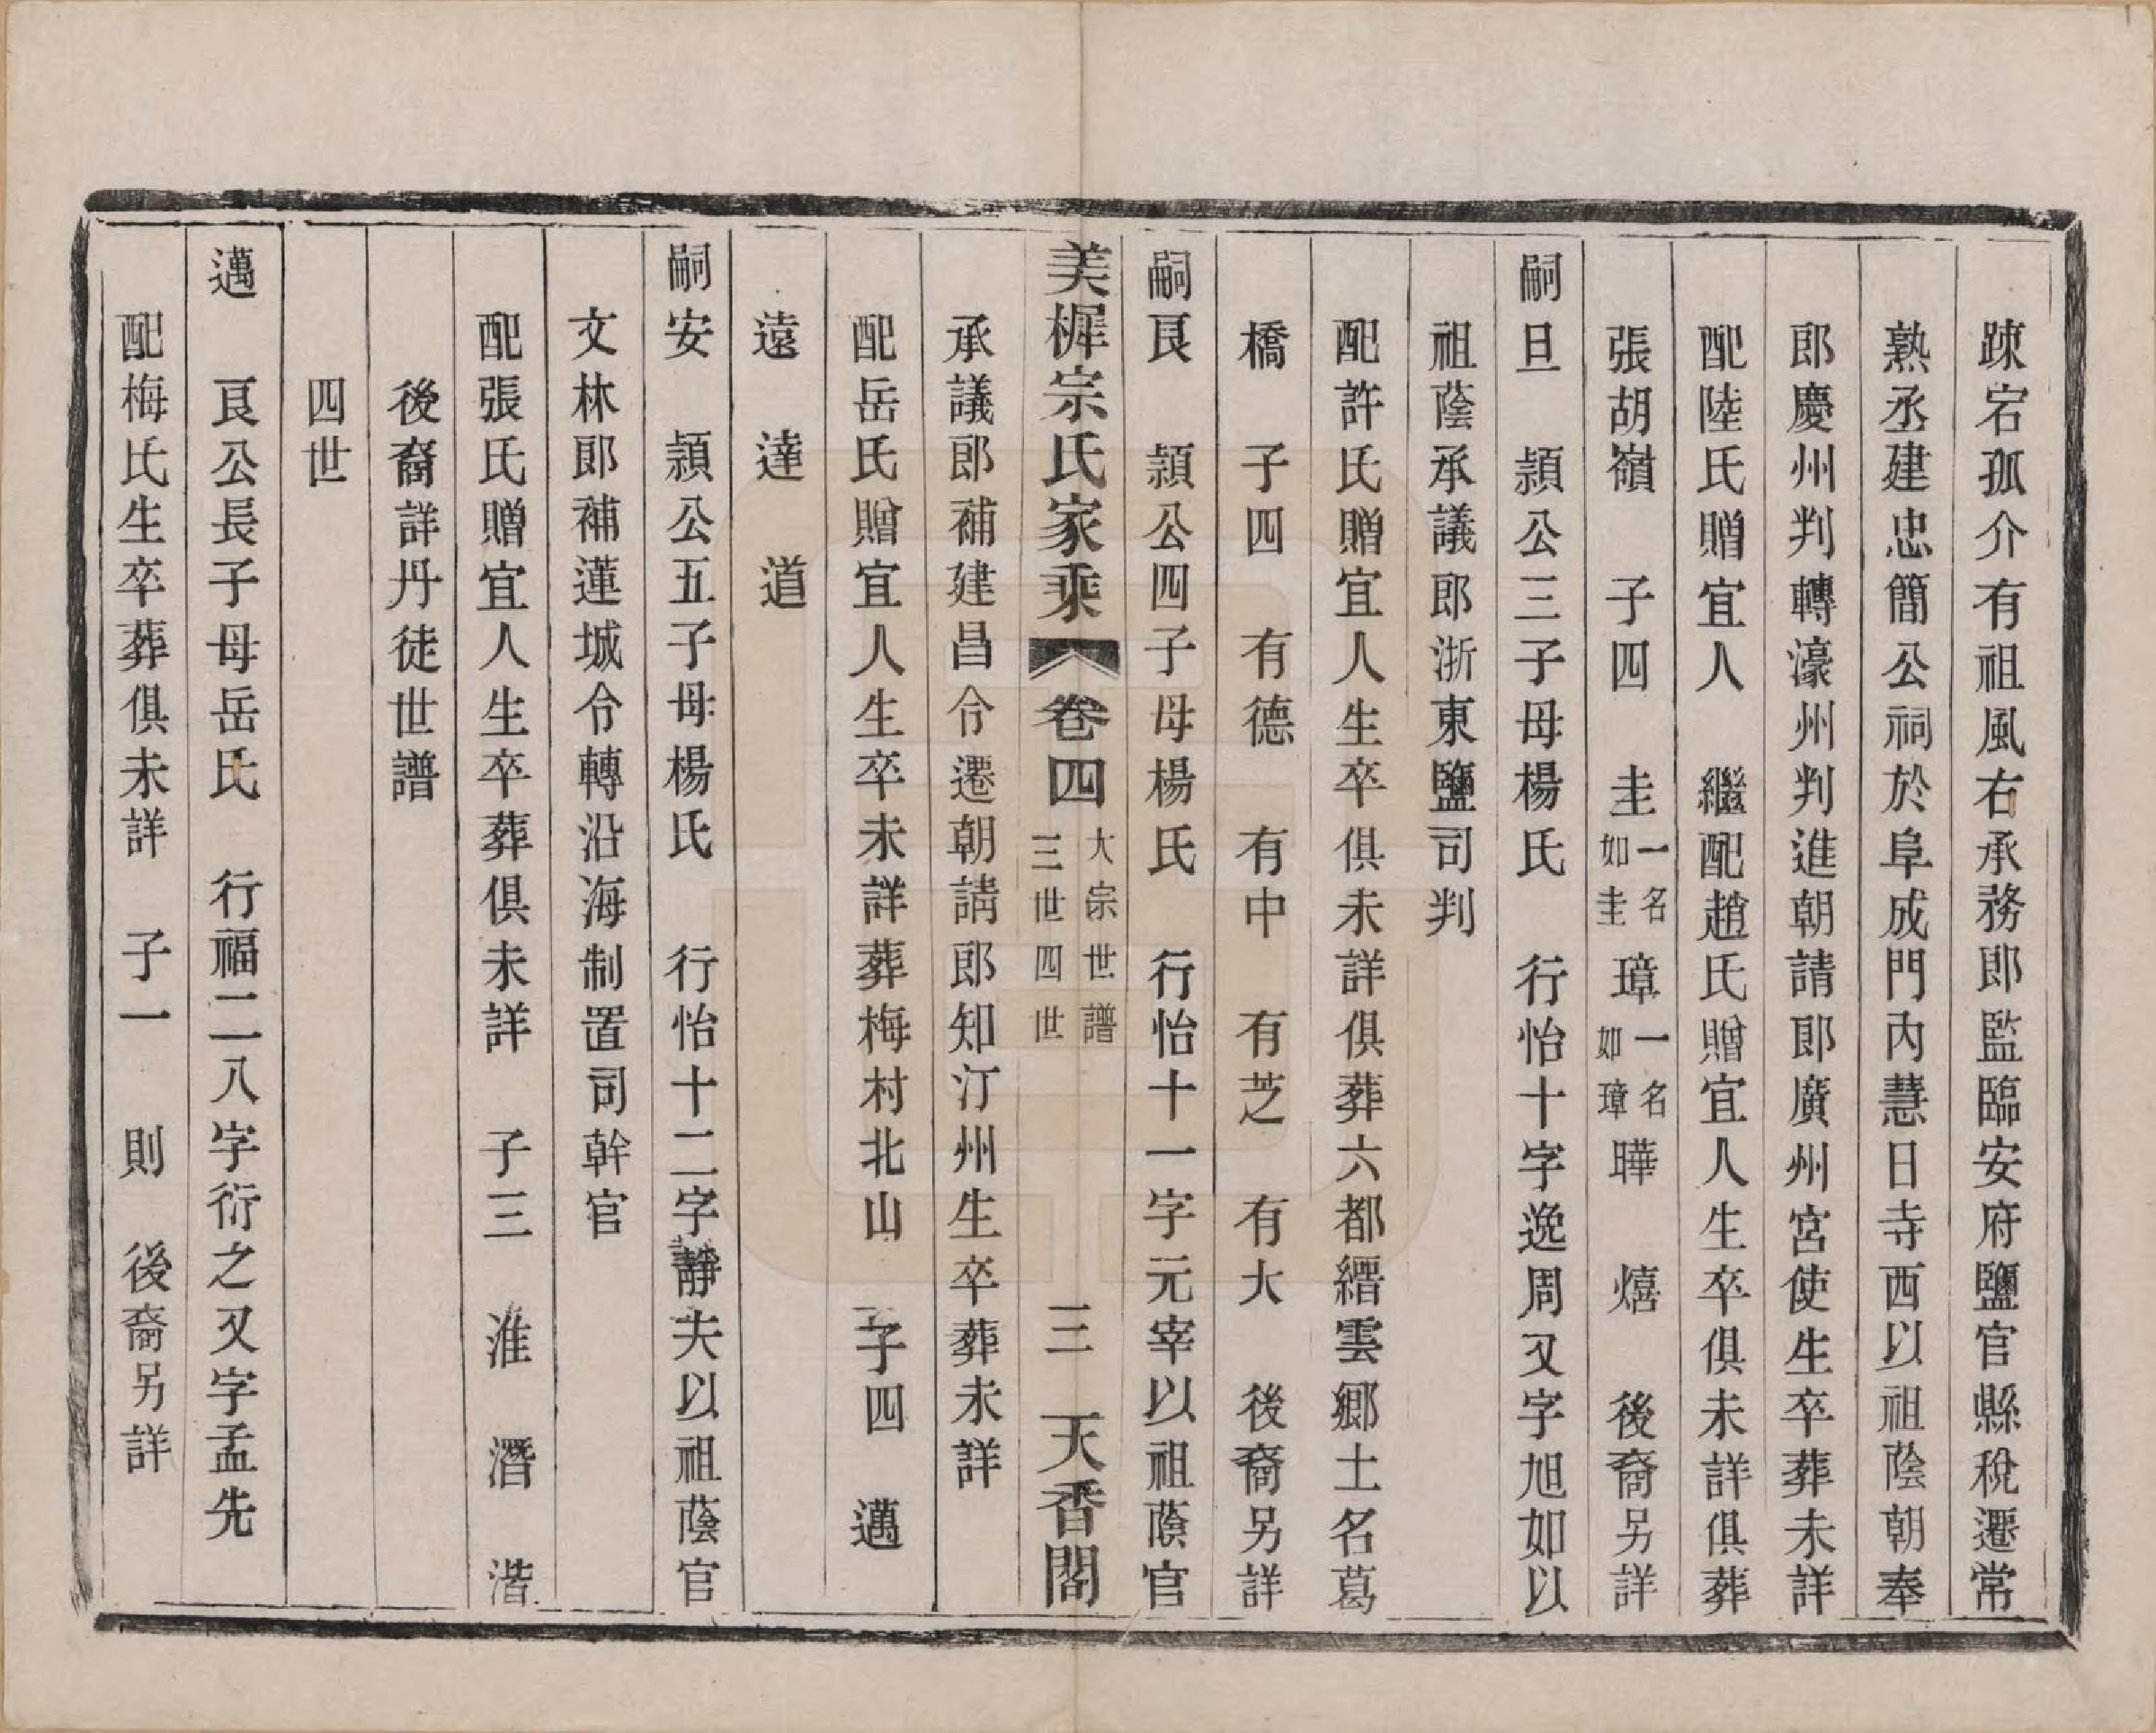 踈宕孤介有祖風右承務郎監臨安府鹽官縣稅遷常
熟丞建忠簡公祠於阜成門內慧日寺西以祖蔭朝奉
郎慶州判轉濠州判進朝請郎廣州宮使生卒葬未詳
配陸氏贈宜人 繼配趙氏贈宜人生卒俱未詳俱葬
張胡嶺 子四 圭一名如圭 璋一名如璋 曄 熺 後裔另詳
嗣旦 頴公三子母楊氏 行怡十字逸周又字旭如以
祖蔭承議郎浙東鹽司判
配許氏贈宜人生卒俱未詳俱葬六都縉雲鄉土名葛
橋 子四 有德 有中 有芝 有大 後裔另詳
嗣良 頴公四子母楊氏 行怡十一字元宰以祖蔭官
美樨宗氏家乘 卷四 大宗世譜 三世四世 三 天香閣
承議郎補建昌令遷朝請郎知汀州生卒葬未詳
配岳氏贈宜人生卒未詳葬梅村北山 子四 邁
遠 達 道
嗣安 頴公五子母楊氏 行怡十二字靜夫以祖蔭官
文林郎補蓮城令轉沿海制置司幹官
配張氏贈宜人生卒葬俱未詳 子三 淮 濳 湝
後裔詳丹徒世譜
四世
邁 良公長子母岳氏 行福二八字衍之又字孟先
配梅氏生卒葬俱未詳 子一 則 後裔另詳